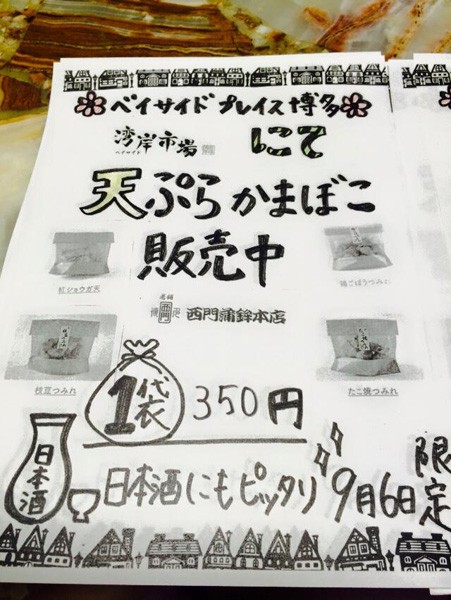 ベイサイドプレイス博多
湾岸市場 にて
ベイサイド
天ぷらかまぼこ
販売中
紅ショウガ天
老舗
博 西門 多 西門蒲鉾本店
枝豆つみれ
たこ焼つみれ
1袋 350円
日本酒
日本酒にもピッタリ
9月6日
限定